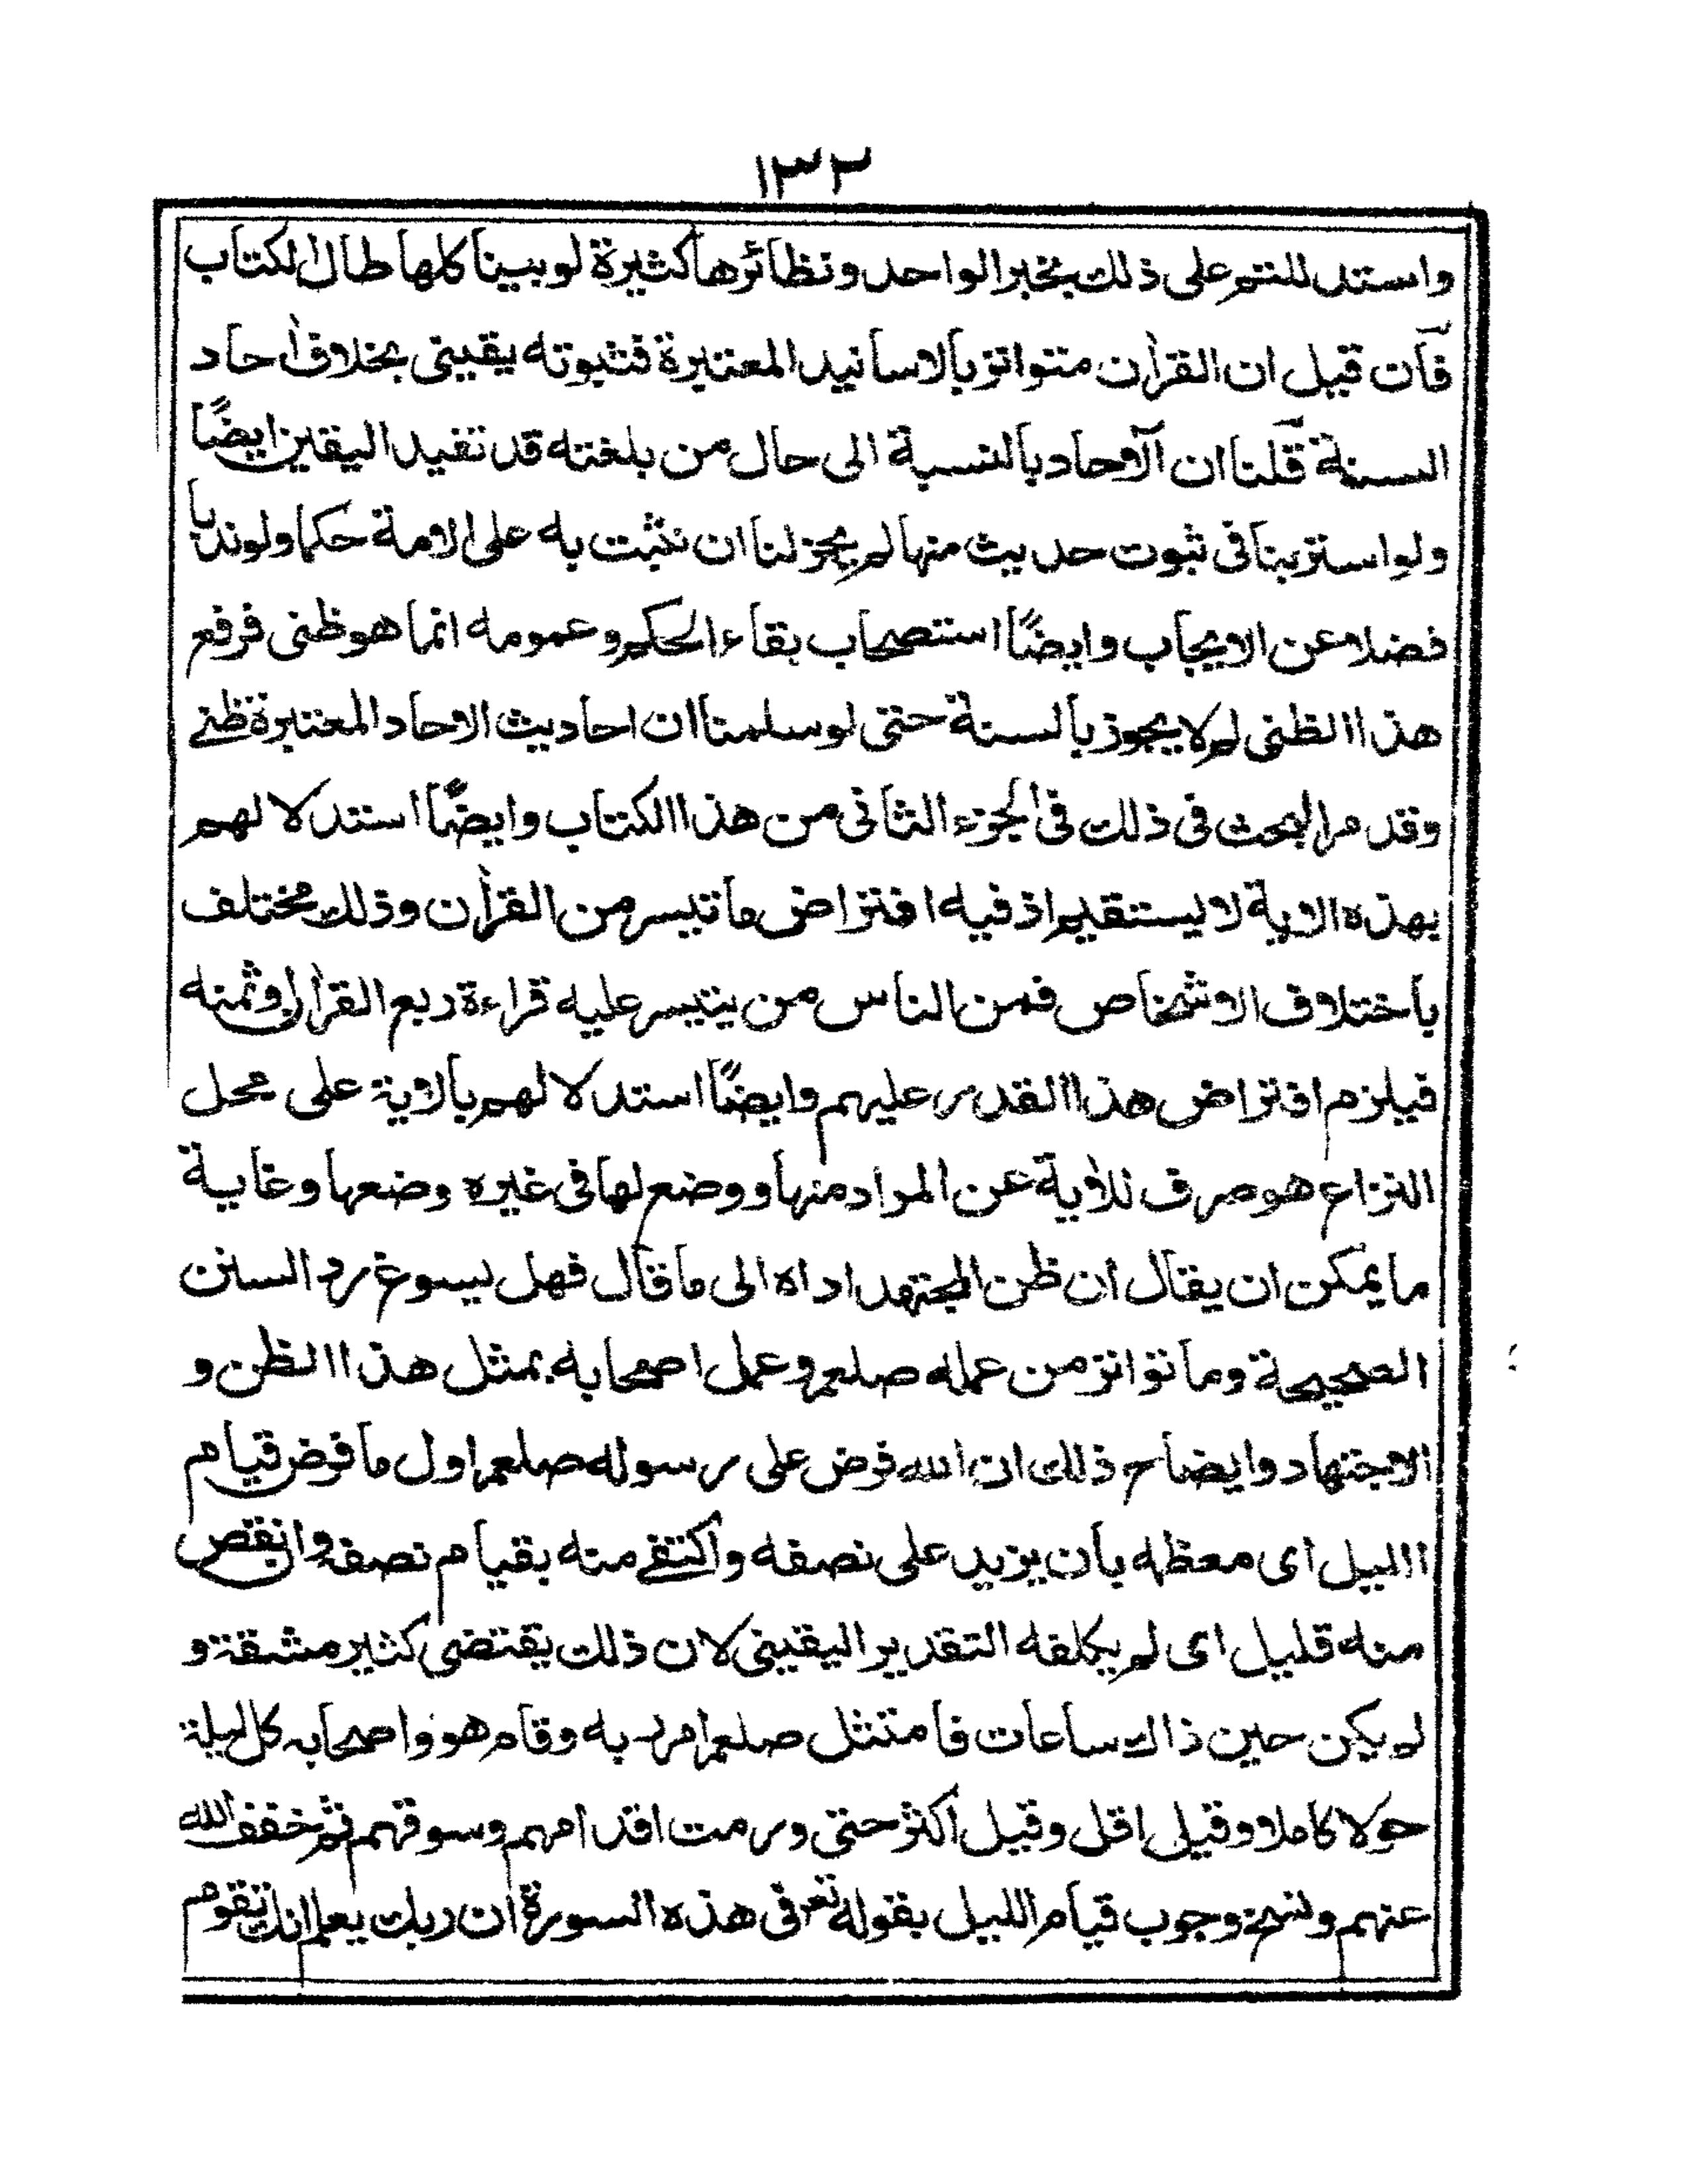 ١٣٢
واستدللتم على ذلك بخبر الواحد ونظائرها كثيرة لو بينا كلها طال الكتاب
فان قيل ان القرآن متواتر بالاسانيد المعتبرة فثبوته يقينى بخلاف آحاد
السنة قلنا ان الآحاد بالنسبة الى حال من بلغته قد تفيد اليقين ايضًا
ولو استربنا فى ثبوت حديث منها لم يجز لنا ان نثبت به على الامة حكما ولو ندبا
فضلا عن الايجاب وايضًا استصحاب بقاء الحكم وعمومه انما هو ظنى فرفع
هذا الظنى لم لا يجوز بالسنة حتى لو سلمنا ان احاديث الاحاد المعتبرة ظنى
وقد مر البحث فى ذلك فى الجزء الثانى من هذا الكتاب وايضًا استدلالهم
بهذه الاية لا يستقيم اذ فيه افتراض ما تيسر من القرآن وذلك مختلف
باختلاف الاشخاص فمن الناس من يتيسر عليه قراءة ربع القرآن او ثمنه
فيلزم افتراض هذا القدر عليهم وايضًا استدلالهم بالاية على محل
النزاع هو صرف للآية عن المراد منها ووضع لها فى غير وضعها وغاية
ما يمكن ان يقال ان ظن المجتهد اداه الى ما قال فهل يسوغ رد السنن
الصحيحة وما تواتر من عمله صلعم وعمل اصحابه بمثل هذا الظن و
الاجتهاد وايضاح ذلك ان الله فرض على رسوله صلعم اول ما فرض قيام
الليل اى معظه بان يزيد على نصفه واكتفى منه بقيام نصفه وانقص
منه قليل اى لم يكلفه التقدير اليقينى لان ذلك يقتضى كثير مشقة و
لم يكن حين ذاك ساعات فامتثل صلعم امر به وقام هو واصحابه كل ليلة
حولا كاملا وقيل اقل وقيل اكثر حتى ورمت اقدامهم وسوقهم ثم خفف الله
عنهم ونسخ وجوب قيام الليل بقوله تعـ فى هذه السورة ان ربك يعلم انك تقوم